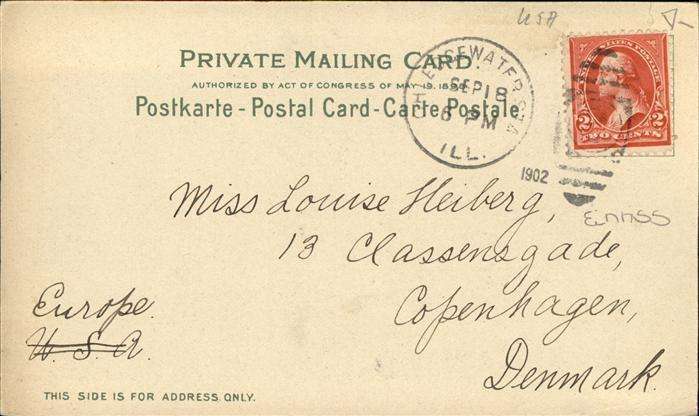 USA
PRIVATE MAILING CARD
AUTHORIZED BY ACT OF CONGRESS OF MAY 19. 1898.
Postkarte - Postal Card - Carte Postale
EDGEWATER STA
SEP 18
6 PM
ILL.
1902
UNITED STATES POSTAGE
2 2
TWO CENTS
Miss Louise Heiberg,
13 Classensgade,
Copenhagen,
Denmark.
Europe.
U.S.A.
THIS SIDE IS FOR ADDRESS ONLY.